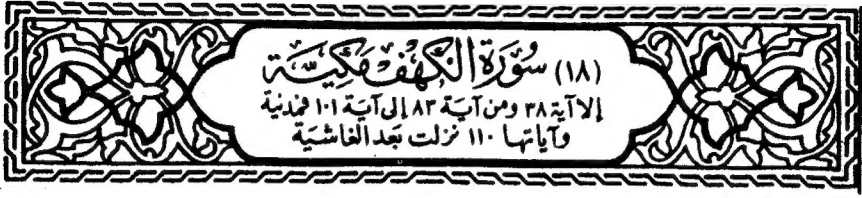 (١٨) سُورَة الكهف مَكيَّة
إلا آية ٣٨ ومن آية ٨٣ إلى آية ١٠١ فمدنية
وآياتها ١١٠ نزلت بعد الغاشية